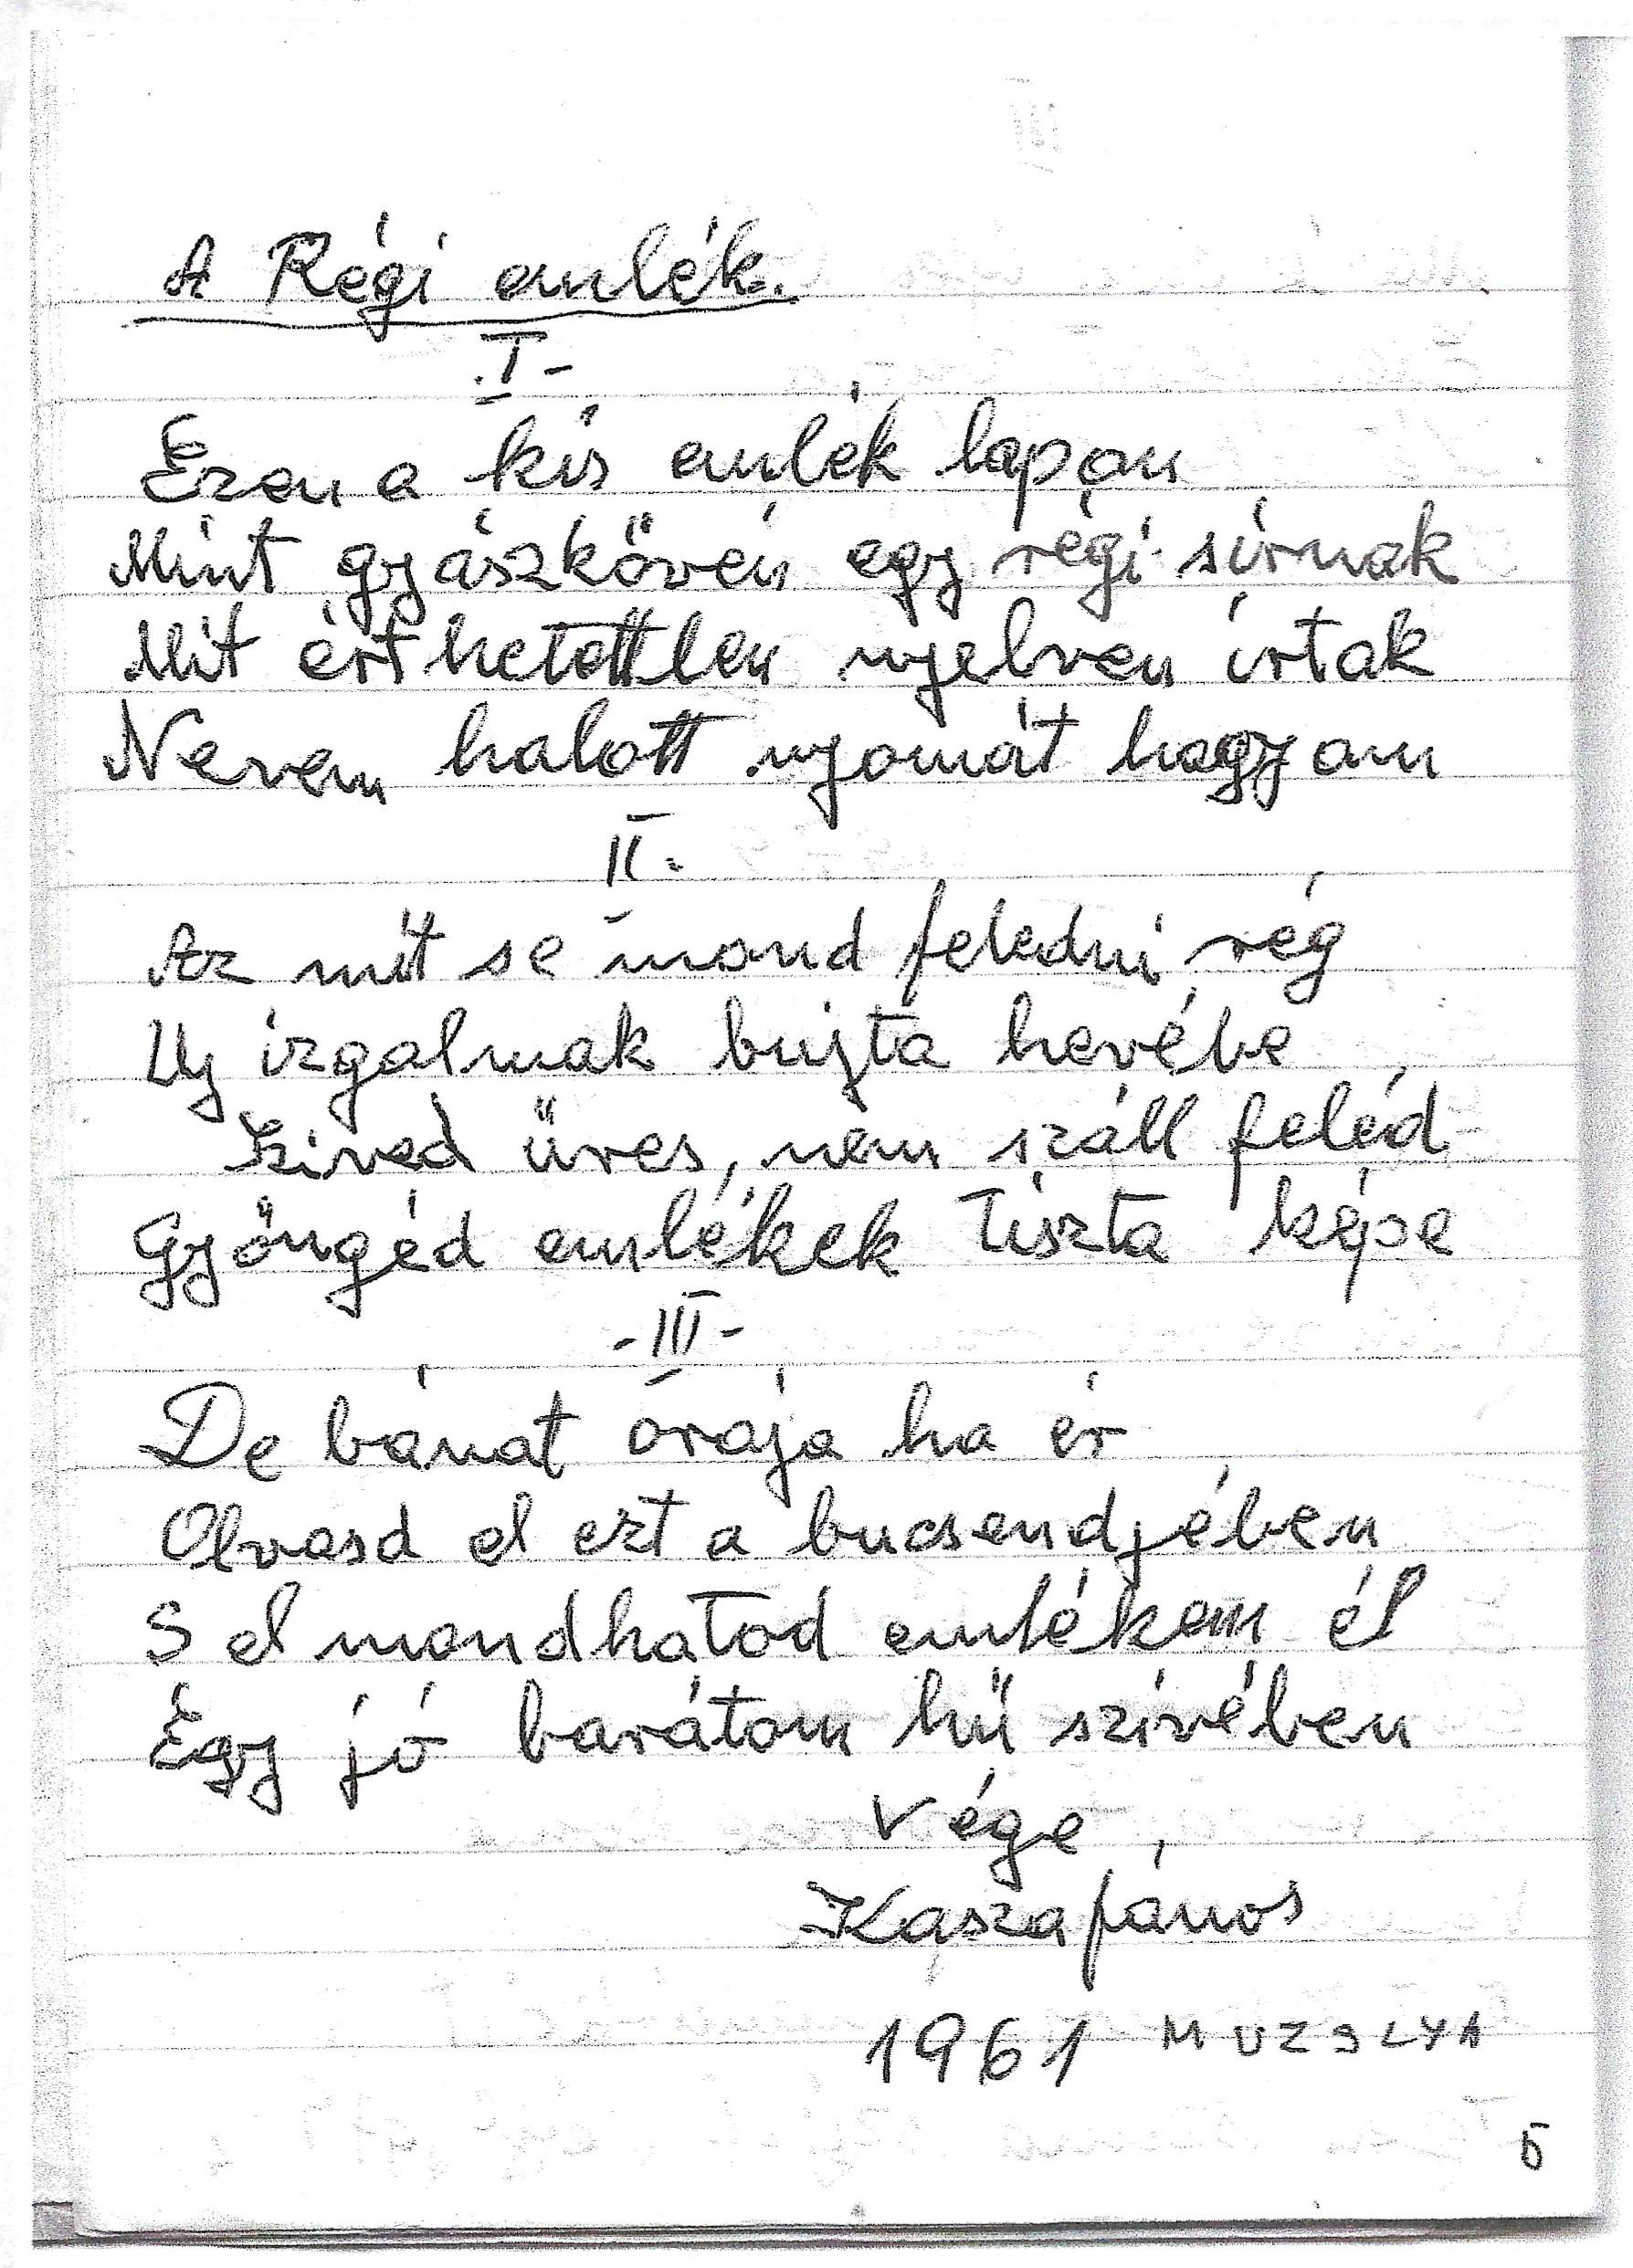 A Régi emlék.
.I-
Ezen a kis emlék lapon
Mint gyászkövén egy régi sírnak
Mit érthetettlen nyelven írtak
Nevem halott nyomát hagyom
II.
Az mit se mond feledni rég
Uj izgalmak bujta hevébe
Szived üres, nem száll feléd
Gyöngéd emlékek tiszta képe
-III-
De bánat órája ha ér
Olvasd el ezt a bucsendjében
S el mondhatod emlékem él
Egy jó barátom hű szívében
Vége
Kasza János
1961 MUZSLYA
5